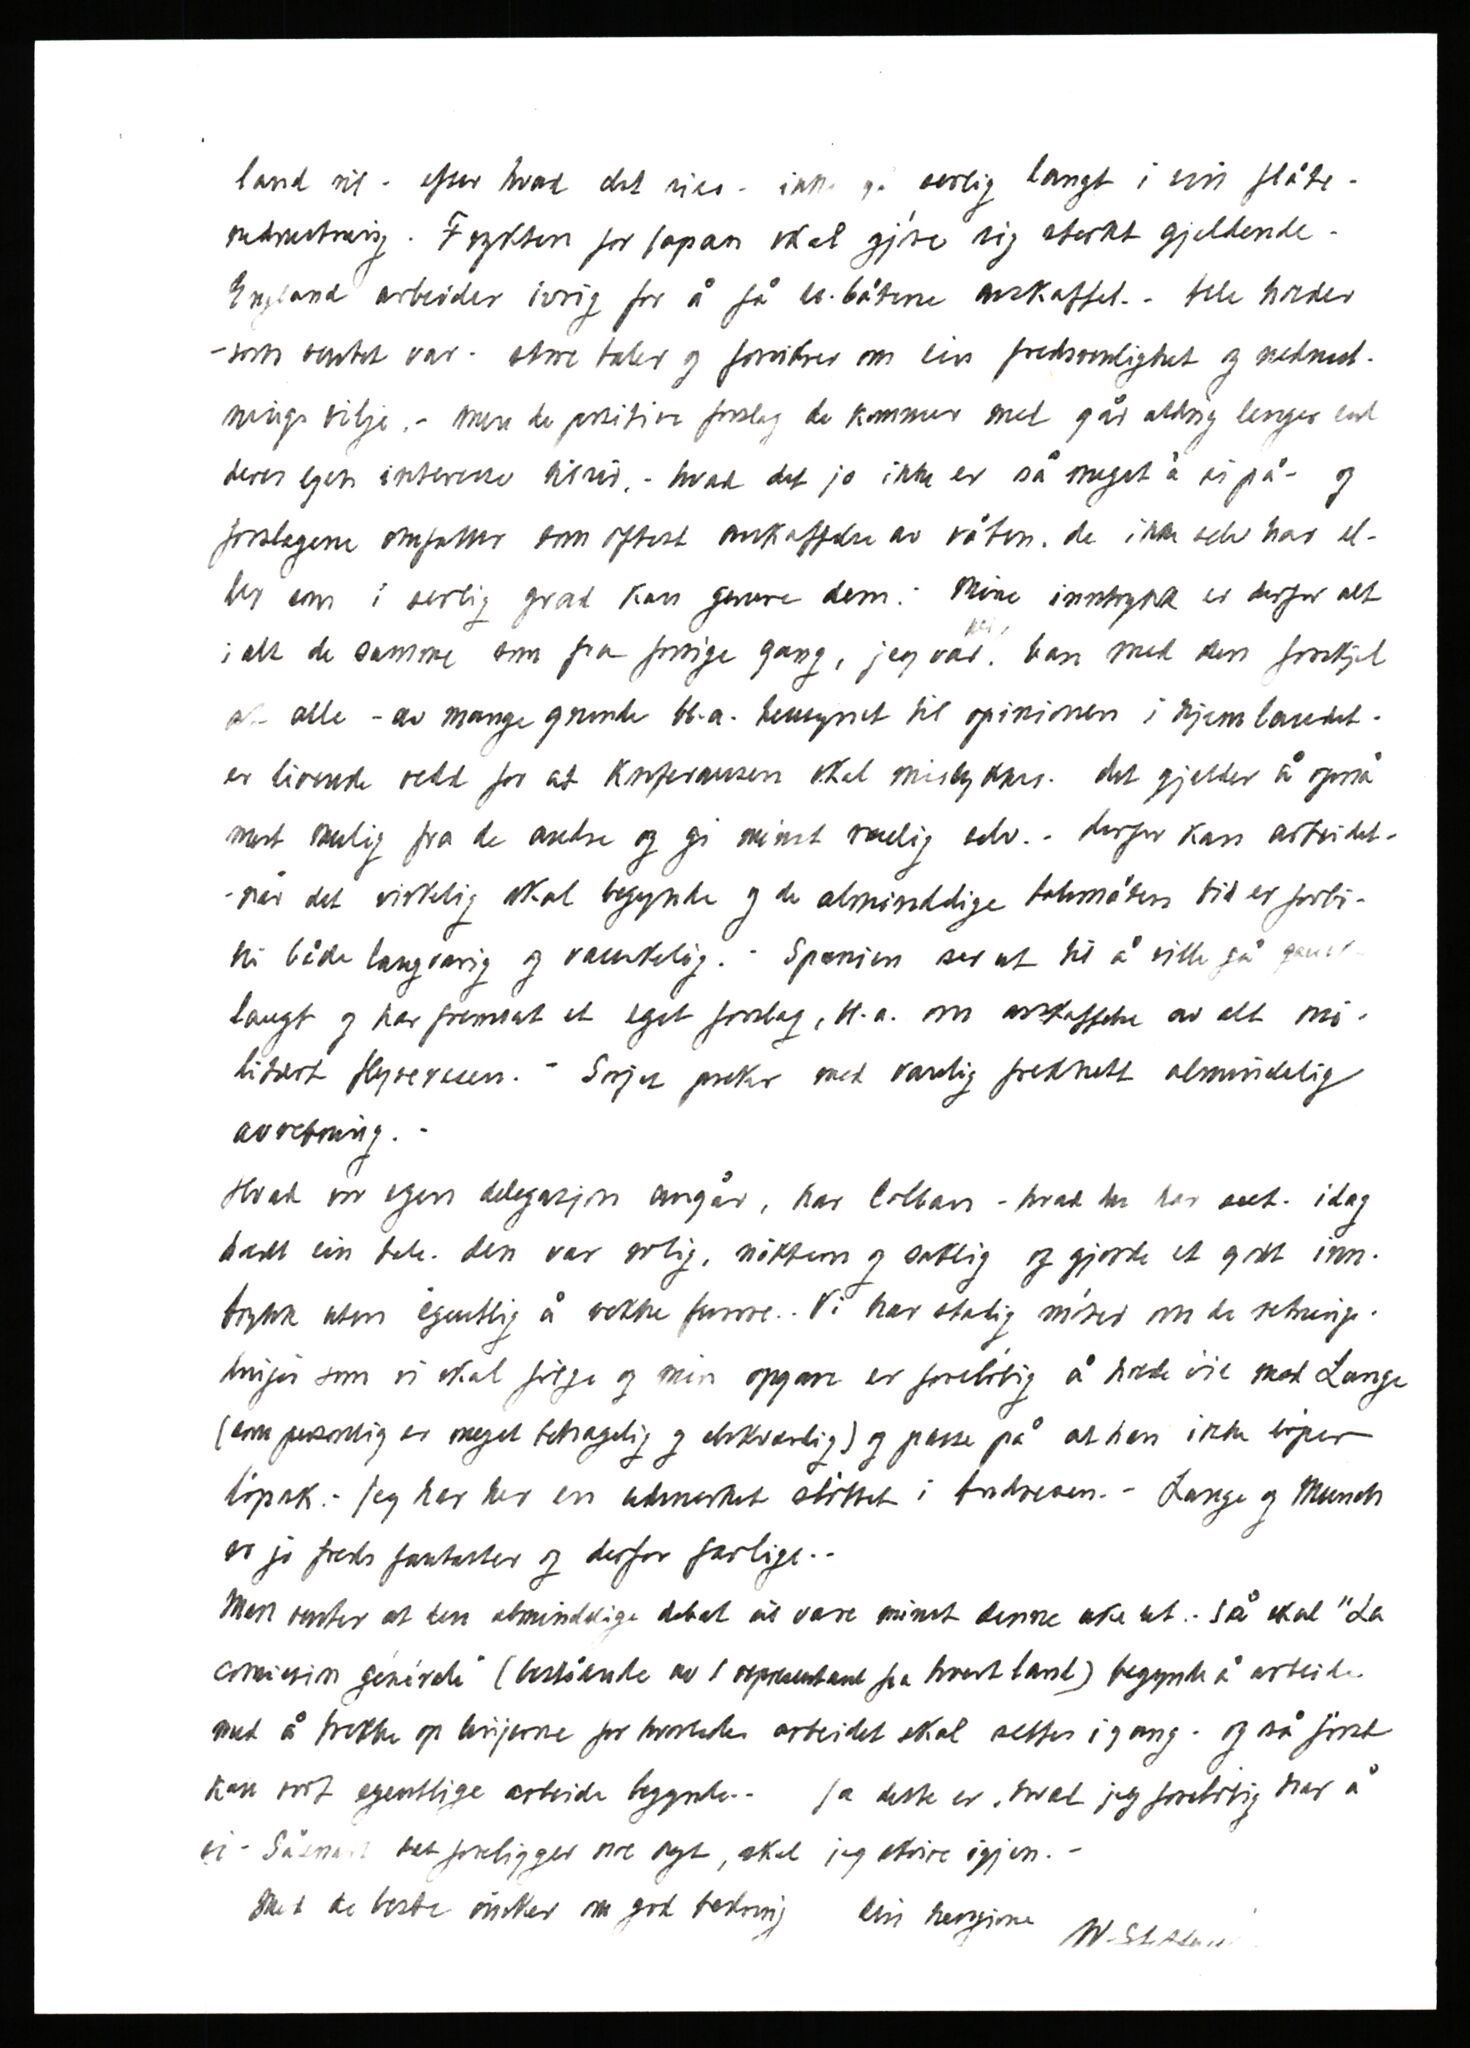 land vil - efter hvad det sies - ikke gå særlig langt i sin flåte-
nedrustning. Frykten for Japan skal gjöre sig sterkt gjeldende -
England arbeider ivrig for å få u.båtene avskaffet. - Alle holder
- som ventet var - store taler og forsikrer om sin fredsvenlighet og nedrust-
nings vilje, - men de positive forslag de kommer med går aldrig lenger enn
deres egen interesse tilsier, - hvad det jo ikke er så meget å si på - og
forslagene omfatter som oftest avskaffelse av våben, de ikke selv har el-
ler som i særlig grad kan genere dem. - Mine inntrykk er derfor alt
i alt de samme som fra forrige gang, jeg var her, bare med den forskjel
at alle - av mange grunde bl.a. hensynet til opinionen i hjemlandet -
er livende redd for at konferansen skal mislykkes. Det gjelder å opnå
mest mulig fra de andre og gi minst mulig selv. - Derfor kan arbeidet -
- når det virkelig skal begynde og de alminddige talemåters tid er forbi -
bli både langvarig og vanskelig. - Spanien ser ut til å ville gå ganske
langt og har fremsat et eget forslag, bl.a. om avskaffelse av alt mi-
litært flyvevesen. - Sovjet prøker med vanlig frekhett almindelig
avvebning. -
Hvad vor egen delegasjon angår, har Colban - hvad du har sett - idag
holdt sin tale. Den var rolig, nöktern og saklig og gjorde et godt inn-
trykk uten egentlig å vekke furore. - Vi har stadig möter om de retnings-
linjer som vi skal fölge og min opgave er forelöbig å holde öie med Lange
(som personlig er meget behagelig og elskværdig) og passe på at han ikke löper
löpsk. - Jeg har her en utmerket stötte i Andresen. - Lange og Munch
er jo freds fantaster og derfor farlige. -
Man venter at den alminddige debat vil vare minst denne uke ut. - Så skal "La
comission générale" (bestående av 1 representant fra hvert land) begynde å arbeide
med å trekke op linjerne for hvorledes arbeidet skal settes igang - og så först
kan vort egentlige arbeide begynde. - Ja dette er, hvad jeg forelöbig har å
si - Såsnart det foreligger noe nytt, skal jeg skrive igjen. -
Med de beste önsker om god bedring din hengivne